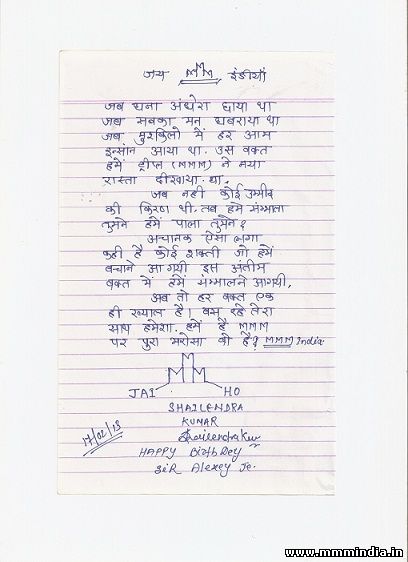 जय MMM इंडीयाँ
जब घना अंधेरा छाया था
जब सबका मन घबराया था
जब मुश्किलो में हर आम
इन्सांन आया था. उस वक्त
हमें ट्रीप्ल (MMM) ने नया
रास्ता दीखाया था.
जब नही कोई उम्मीद
की किरण थी. तब हमें संम्भाला
तुमने हमें पाला तुमने?
अचानक ऐसा लगा
कही है कोई शक्ती जो हमें
बचाने आ गयी इस अंतीम
वक्त में हमें संम्भालने आगयी.
अब तो हर वक्त एक
ही ख्याल है। बस रहे तेरा
साथ हमेशा. हमें है MMM
पर पुरा भरोसा वो है? MMM India.
MMM
JAI HO
SHAILENDRA
KUMAR
17/02/13 Shailendra Kur
HAPPY Birthdey
SiR Alexey Je.
www.mmmindia.in